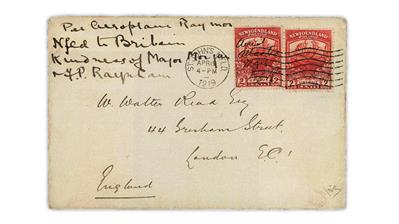 Per Aeroplane Raymor
Nfld to Britain
Kindness of Major Morgan
NEWFOUNDLAND
NEWFOUNDLAND
ST. JOHN'S, NFLD
APR
4-PM
1919
2
2
CENTS
W. Walter Read Esq
44 Gresham Street.
London E.C.1
England